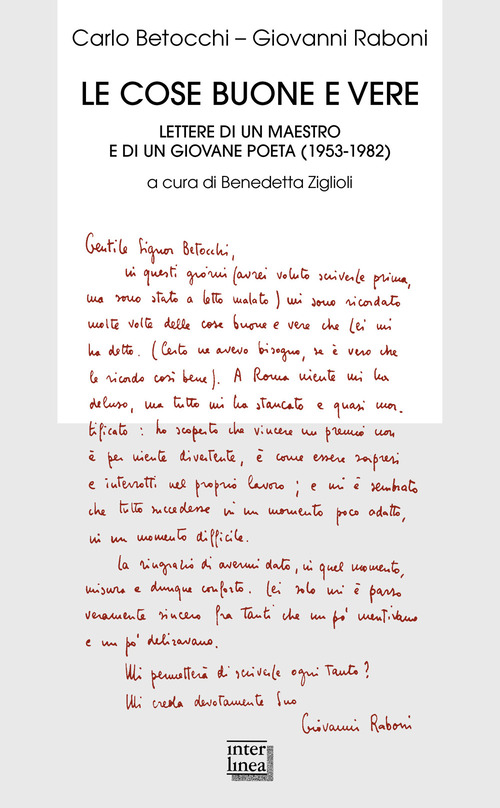 Carlo Betocchi – Giovanni Raboni
LE COSE BUONE E VERE
LETTERE DI UN MAESTRO
E DI UN GIOVANE POETA (1953-1982)
a cura di Benedetta Ziglioli
Gentile Signor Betocchi,
in questi giorni (avrei voluto scriverle prima,
ma sono stato a letto malato) mi sono ricordato
molte volte delle cose buone e vere che Lei mi
ha detto. (Certo ne avevo bisogno, se è vero che
le ricordo così bene). A Roma niente mi ha
deluso, ma tutto mi ha stancato e quasi mor-
tificato: ho scoperto che vincere un premio non
è per niente divertente, è come essere sorpresi
e interrotti nel proprio lavoro; e mi è sembrato
che tutto succedesse in un momento poco adatto,
in un momento difficile.
La ringrazio di avermi dato, in quel momento,
misura e dunque conforto. Lei solo mi è parso
veramente sincero fra tanti che un po' mentivano
e un po' deliravano.
Mi permetterà di scriverle ogni tanto?
Mi creda devotamente Suo
Giovanni Raboni
inter
linea